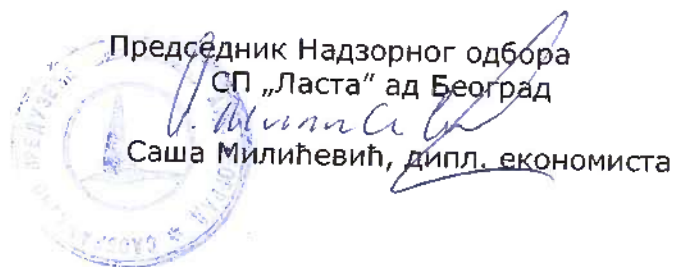 Председник Надзорног одбора
СП „Ласта“ ад Београд
Саша Милићевић, дипл. економиста